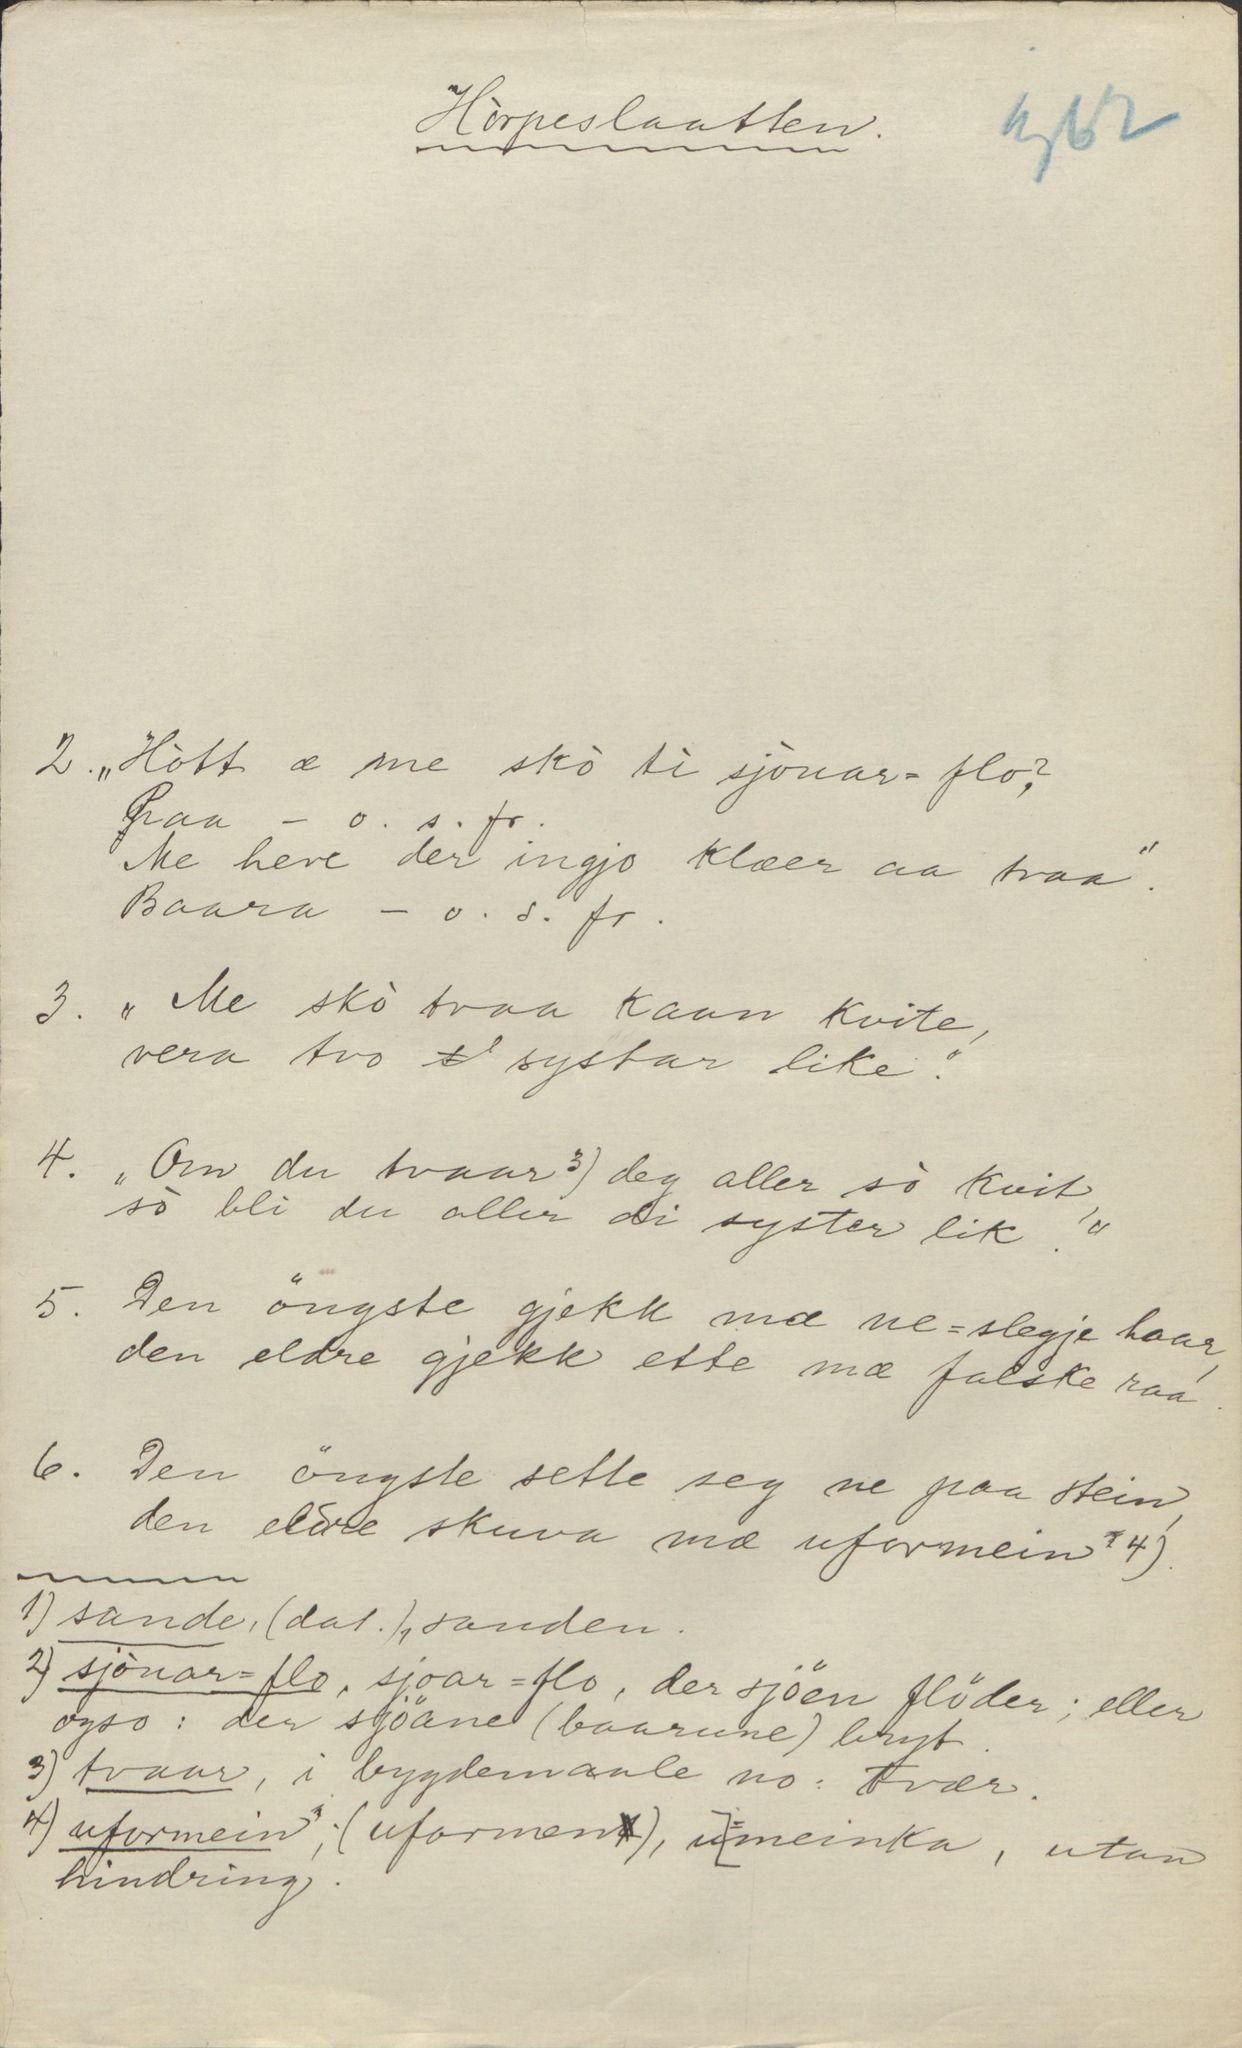 Hòrpeslaatten.
2. „Hòtt æ me skò ti sjònar=flo?
Paa – o. s. fr.
Me heve der ingjo klæer aa tvaa".
Baara – o. s. fr.
3. „Me skò tvaa kaan kvite,
vera two systar like."
4. „Om du tvaar 3) deg aller sò kvit,
sò bli du aller di syster lik!"
5. Den öngste gjekk mæ ne=slegje haar,
den eldre gjekk ette mæ falske raa.
6. Den öngste sette seg ne paa stein,
den eldre skuva mæ uformein 4).
1) sande, (dat.), sanden.
2) sjònar=flo, sjoar=flo, der sjöen flöder; eller
ogso: der sjöane (baarune) bryt.
3) tvaar, i bygdemaale no: tvær.
4) uformein; (uformen), u=meinka, utan
hindring.